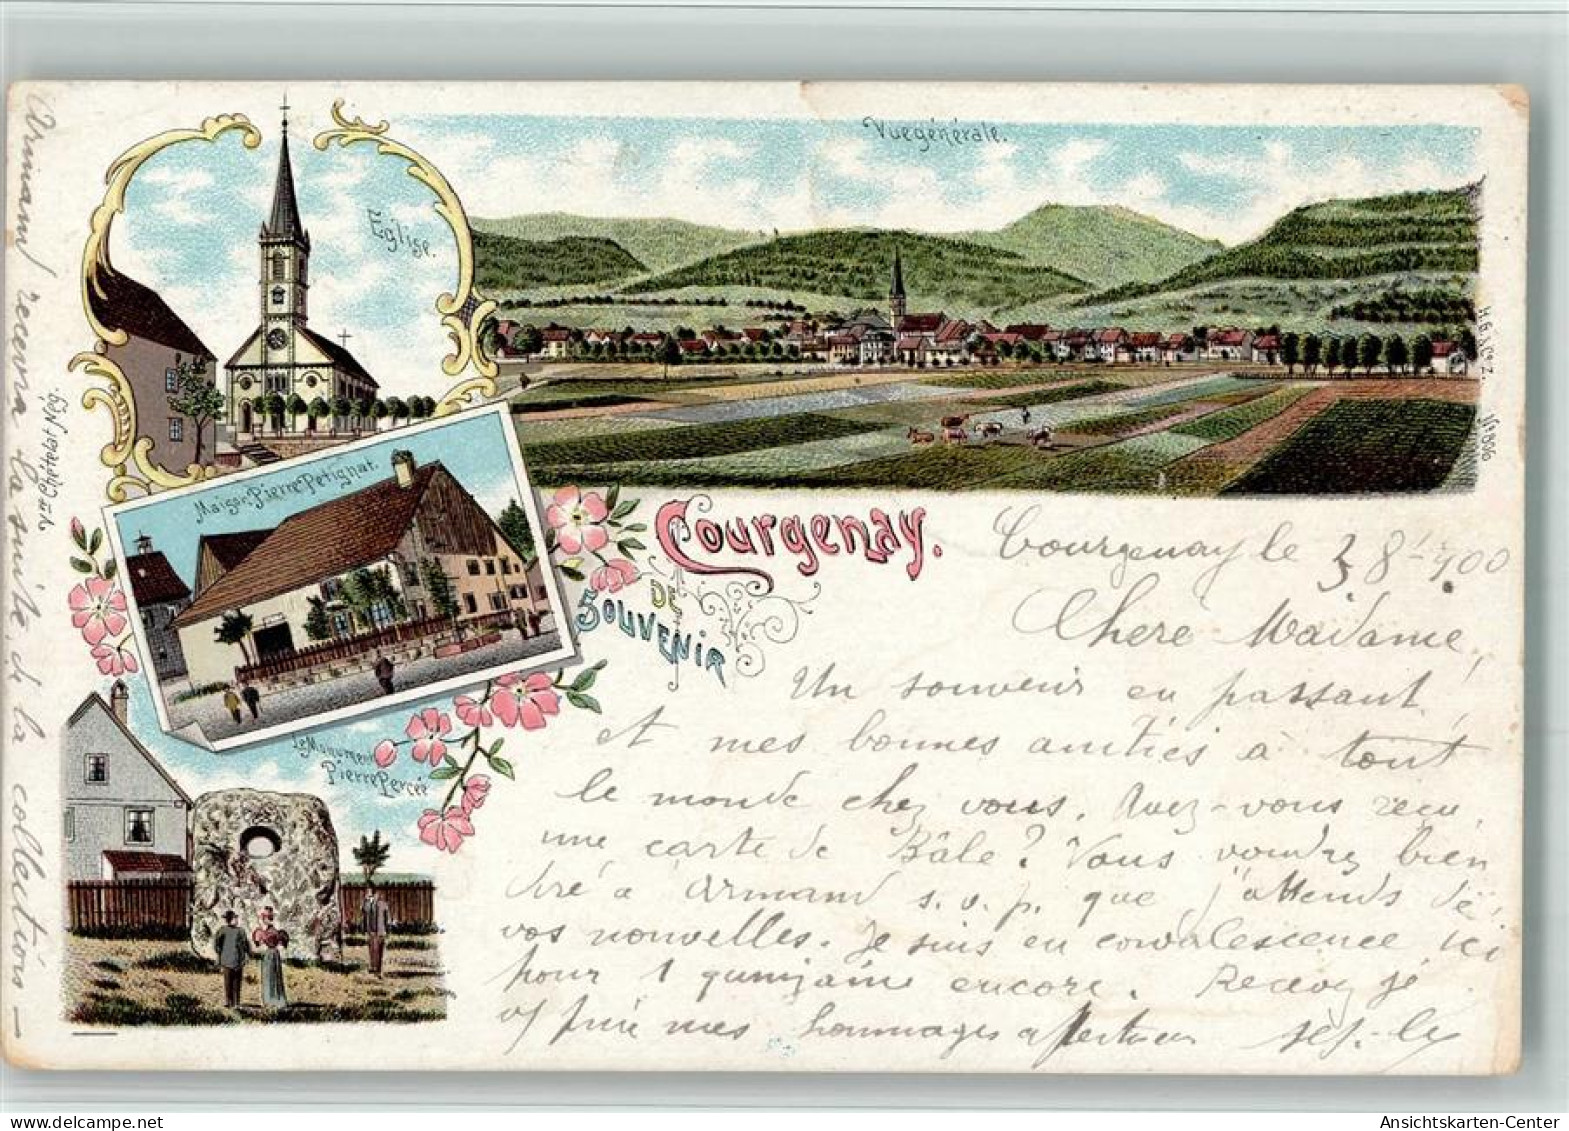 Eglise.
Vue générale.
Maison Pierre Petignat.
Le Monument
Pierre Percée
Courgenay.
SOUVENIR
DE
Courgenay le 3.8.1900
Chère Madame,
Un souvenir en passant,
et mes bonnes amitiés à tout
le monde chez vous. Avez-vous reçu
une carte de Bâle? Vous voudrez bien
dire à Armand s.v.p. que j'attends de
vos nouvelles. Je suis en convalescence ici
pour 1 quinzaine encore. Recevez je
mes hommages
Armand recevra la suite de la collection —
Nég. Chételat
delefant-berlin.net
Ansichtskarten-Center